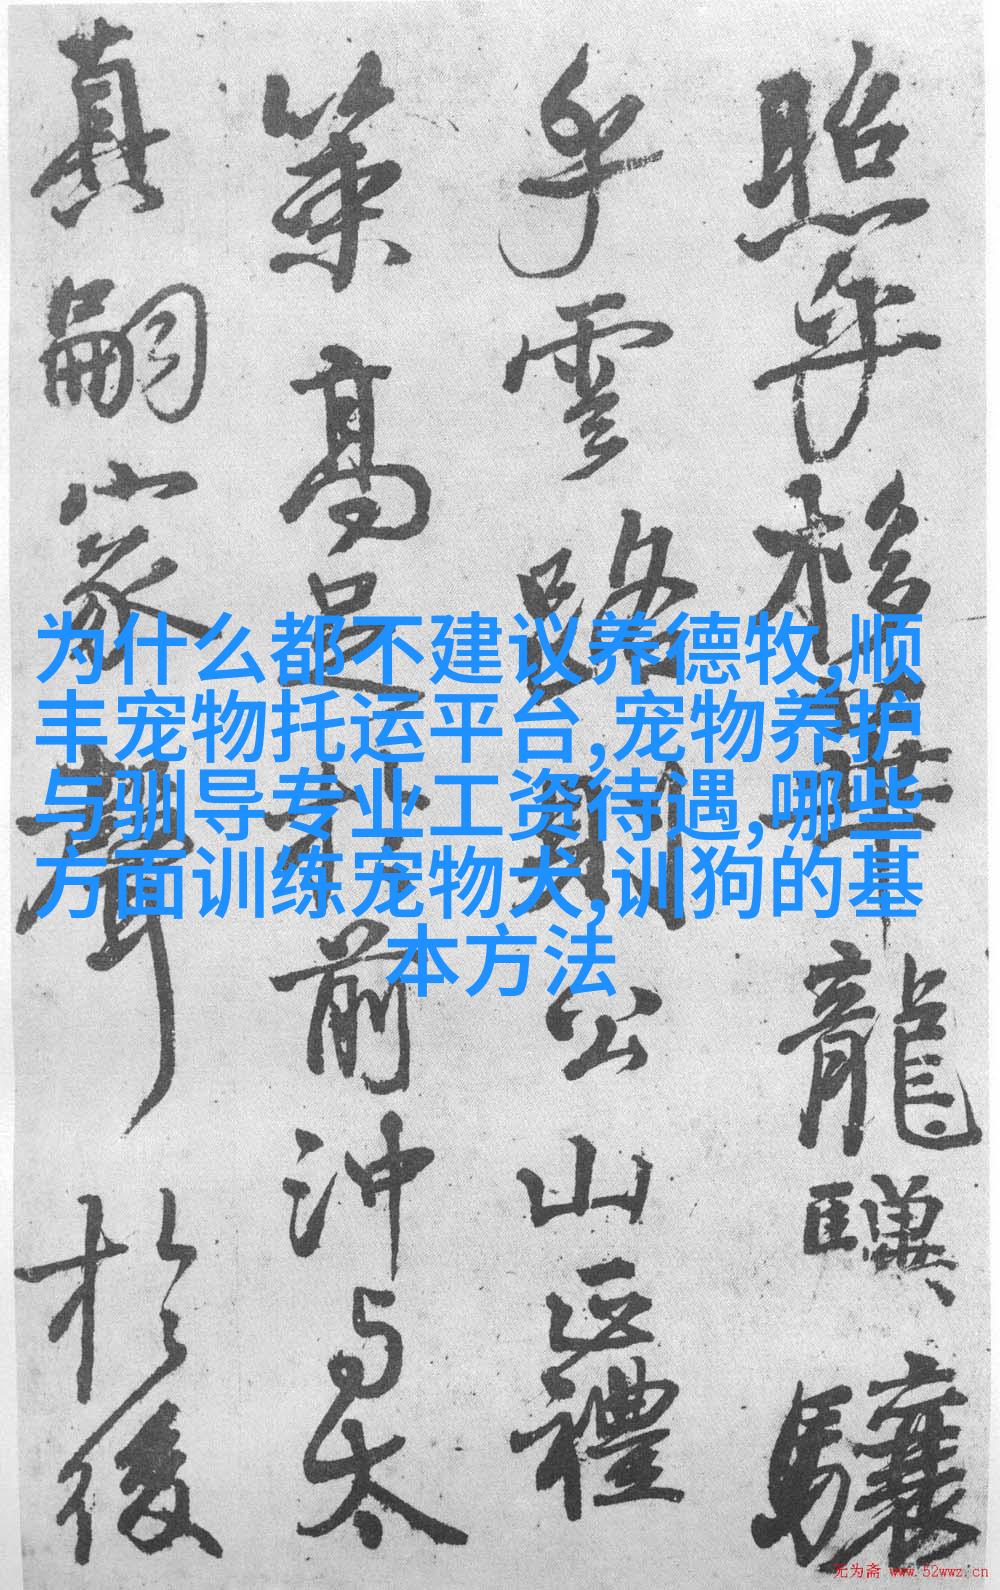 照乎栘華龍驥驤
乎雲路則公山正禮
策高足於前沖与太
真嗣家聲於後
为什么都不建议养德牧,顺
丰宠物托运平台,宠物养护
与驯导专业工资待遇,哪些
方面训练宠物犬,训狗的基
本方法
无为斋 www.52wwz.cn